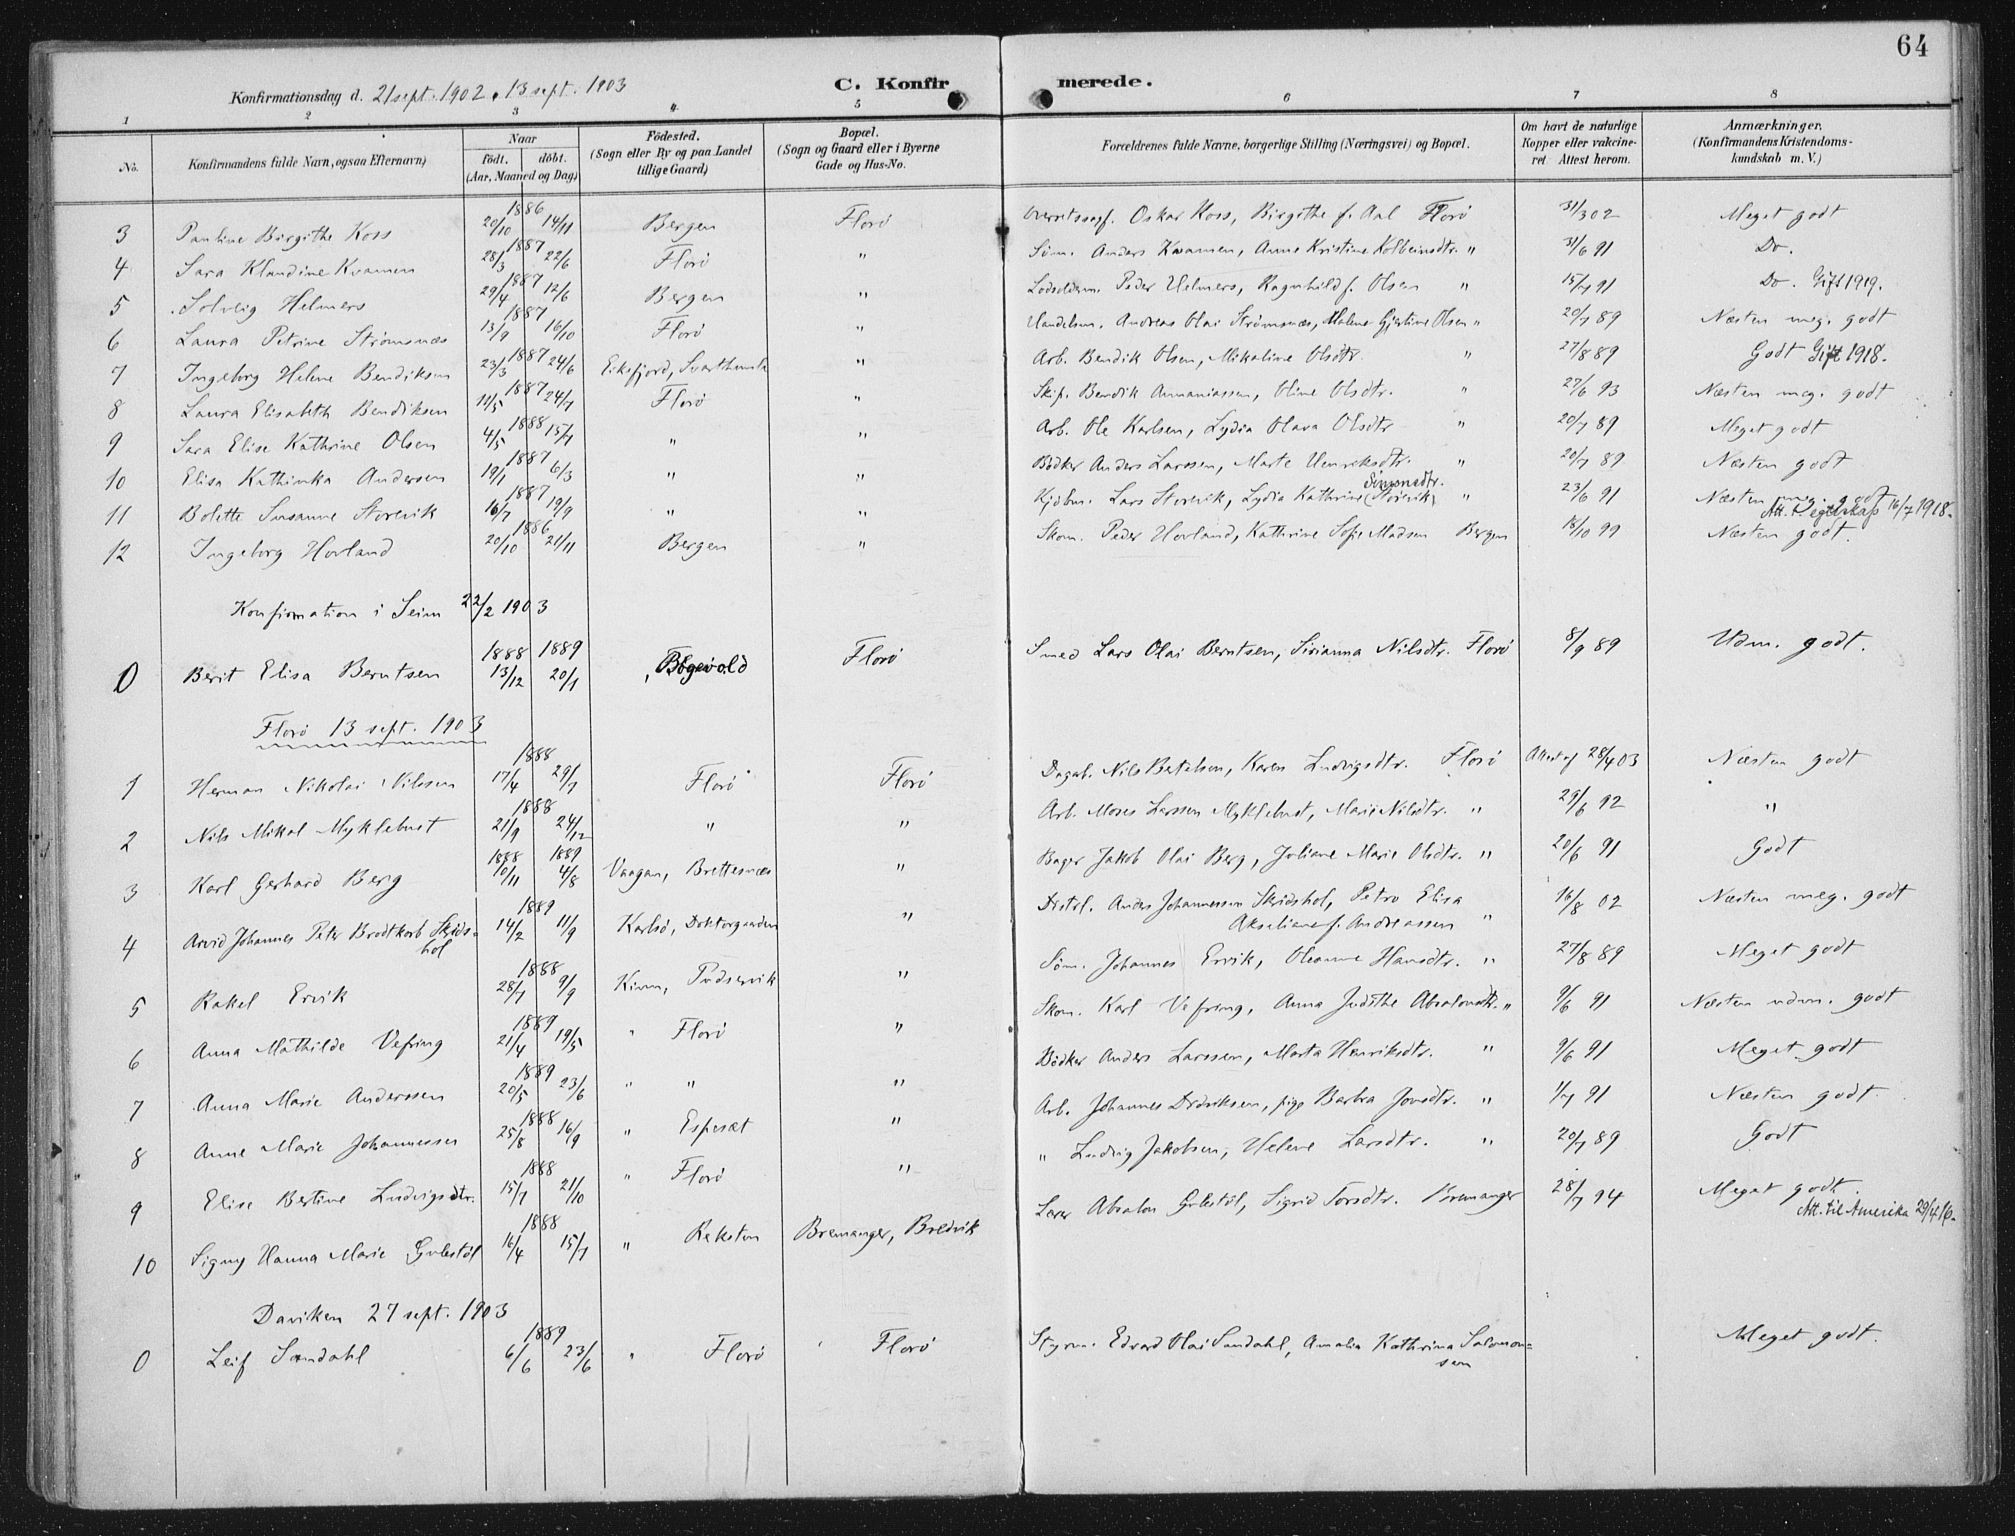 64
Konfirmationsdag d. 21 sept. 1902, 13 sept. 1903 C. Konfirmerede.
1 2 3 4 5 6 7 8
No. Konfirmandens fulde Navn, ogsaa Efternavn) Naar födt. döbt. (Aar, Maaned og Dag) Födested. (Sogn eller By og paa Landet tillige Gaard) Bopæl. (Sogn og Gaard eller i Byerne Gade og Hus-No. Forældrenes fulde Navne, borgerlige Stilling (Næringsvei) og Bopæl. Om havt de naturlige Kopper eller vakcineret Attest herom. Anmærkninger. (Konfirmandens Kristendomskundskab m. V.)
3 Pauline Birgithe Koss 1886 20/10 14/11 Bergen Florö Overretssagf. Oskar Koss, Birgithe f. Aal Florö 31/3 02 Meget godt
4 Sara Klaudine Kvamen 1887 28/3 22/6 Florö " Söm. Anders Kvamen, Anne Kristine Kolbeinsdtr. " 31/6 91 Do.
5 Solveig Helmers 1887 29/4 12/6 Bergen " Lodsoldem. Peder Helmers, Ragnhild f. Olsen " 15/7 91 Do. Gift 1919.
6 Laura Petrine Strömsnæs 1887 13/9 16/10 Florö " Handelsm. Andreas Olai Strömsnæs, Malene Gjertine Olsen " 20/7 89 Næsten meg. godt
7 Ingeborg Helene Bendiksen 1887 23/3 24/6 Eikefjord, " Arb. Bendik Olsen, Mikaline Olsdtr. " 27/8 89 Godt Gift 1918.
8 Laura Elisabeth Bendiksen 1887 11/5 24/7 Florö " Skip. Bendik Annaniassen, Oline Olsdtr. " 27/6 93 Næsten meg. godt
9 Sara Elise Kathrine Olsen 1888 4/5 15/7 " " Arb. Ole Karlsen, Lydia Olava Olsdtr " 20/7 89 Meget godt
10 Elisa Kathinka Andersen 1887 19/1 6/3 " " Bödker Anders Larssen, Marte Henriksdtr. " 20/7 89 Næsten godt
11 Bolette Susanne Storevik 1887 16/7 19/9 " " Kjöbm. Lars Storevik, Lydia Kathrine Simonsdtr. (Storevik) " 23/6 91 Næsten meg. godt
Att. t. Egteskap 16/7 1918.
12 Ingeborg Hovland 1886 20/10 21/11 Bergen " Skom. Peder Hovland, Kathrine Sofie Madsen Bergen 18/10 99 Næsten godt.
Konfirmation i Seim 22/2 1903
0 Berit Elisa Berntsen 1888 13/12 1889 20/1 Florö Smed Lars Olai Berntsen, Sirianna Nilsdtr. Florö 8/9 89 Udm. godt.
Florö 13 sept. 1903
1 Herman Nikolai Nilssen 1888 17/4 29/7 Florö Florö Dagarb. Nils Batalsen, Karen Ludvigsdtr. Florö Attest af 28/4 03 Næsten godt
2 Nils Mikal Myklebust 1888 21/9 24/12 " " Arb. Moses Larssen Myklebust, Marie Nilsdtr. " 29/6 92 "
3 Karl Gerhard Berg 1888 10/11 1889 4/8 Vaagan, Brettesnæs " Bager Jakob Olai Berg, Juliane Marie Olsdtr. " 20/6 91 Godt
4 Arvid Johannes Peter Brodtkorb Skidshol 1889 14/2 11/9 Karlsö, Doktorgaarden " Dstrl. Anders Johannessen Skridshol, Petra Elisa
Akseliane f. Andreassen " 16/8 02 Næsten meg. godt
5 Rakel Ervik 1888 28/7 9/9 Kinn, " Söm. Johannes Ervik, Oleanne Hansdtr. " 27/8 89 Meget godt
6 Anna Mathilde Vefring 1889 21/4 19/5 " Florö " Skom. Karl Vefring, Anna Judithe Absalonsdtr. " 9/6 91 Næsten udm. godt
7 Anna Marie Anderssen 1889 20/5 23/6 " " " Bödker Anders Larssen, Marta Henriksdtr. " 9/6 91 Meget godt
8 Anne Marie Johannessen 1888 25/8 16/9 " Espeset " Arb. Johannes Didriksen, pige Barbra Jonsdtr. " 1/7 91 Næsten godt
9 Elise Bertine Ludvigsdtr. 1888 15/7 21/10 " Florö " " Ludvig Jakobsen, Helene Larsdtr. " 20/7 89 Godt
10 Signy Hanna Marie Gulestöl 1888 16/4 15/7 " Reksten Bremanger, Bredvik Lærer Absalon Gulestöl, Sigrid Torsdtr. Bremanger 28/7 94 Meget godt.
Att. til Amerika 29/4 16.
Daviken 27 sept. 1903
0 Leif Sandahl 1889 6/6 23/6 " Florö Florö Styrm. Edvard Olai Sandahl, Amalia Kathrina Salomonsen Meget godt.